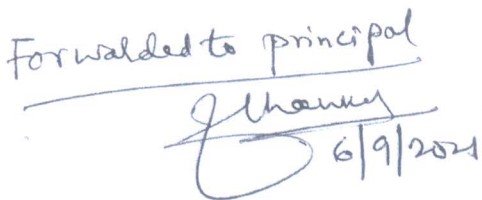 Forwarded to principal
6/9/2021